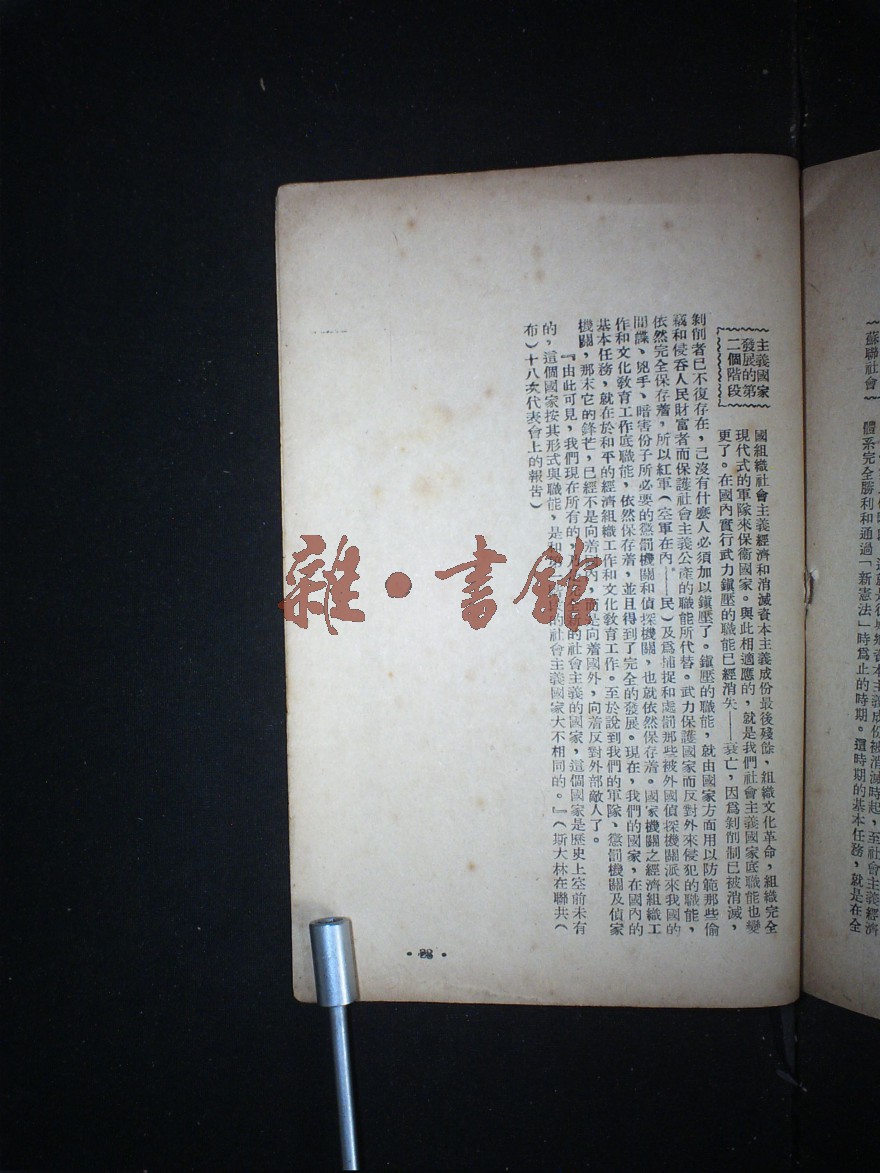 蘇聯社會
體系完全勝利和通過「新憲法」時爲止的時期。這時期的基本任務，就是在全
主義國家
發展的第
二個階段
國組織社會主義經濟和消滅資本主義成份最後殘餘，組織文化革命，組織完全
現代式的軍隊來保衛國家。與此相適應的，就是我們社會主義國家底職能也變
更了。在國內實行武力鎭壓的職能已經消失——衰亡，因爲剝削制已被消滅，
剝削者已不復存在，已沒有什麼人必須加以鎭壓了。鎭壓的職能，就由國家方面用以防範那些偷
竊和侵吞人民財富者而保護社會主義公產的職能所代替。武力保護國家而反對外來侵犯的職能，
依然完全保存着，所以紅軍（空軍在內——民）及爲捕捉和處罰那些被外國偵探機關派來我國的
間諜、兇手、暗害份子所必要的懲罰機關和偵探機關，也就依然保存着。國家機關之經濟組織工
作和文化敎育工作底職能，依然保存着，並且得到了完全的發展。現在，我們的國家，在國內的
基本任務，就在於和平的經濟組織工作和文化敎育工作。至於說到我們的軍隊、懲罰機關及偵家
機關，那末它的鋒芒，已經不是向着國內，而是向着國外，向着反對外部敵人了。
『由此可見，我們現在所有的，的社會主義的國家，這個國家是歷史上空前未有
的，這個國家按其形式與職能，是和的社會主義國家大不相同的。』（斯大林在聯共（
布）十八次代表會上的報告）
雜·書館